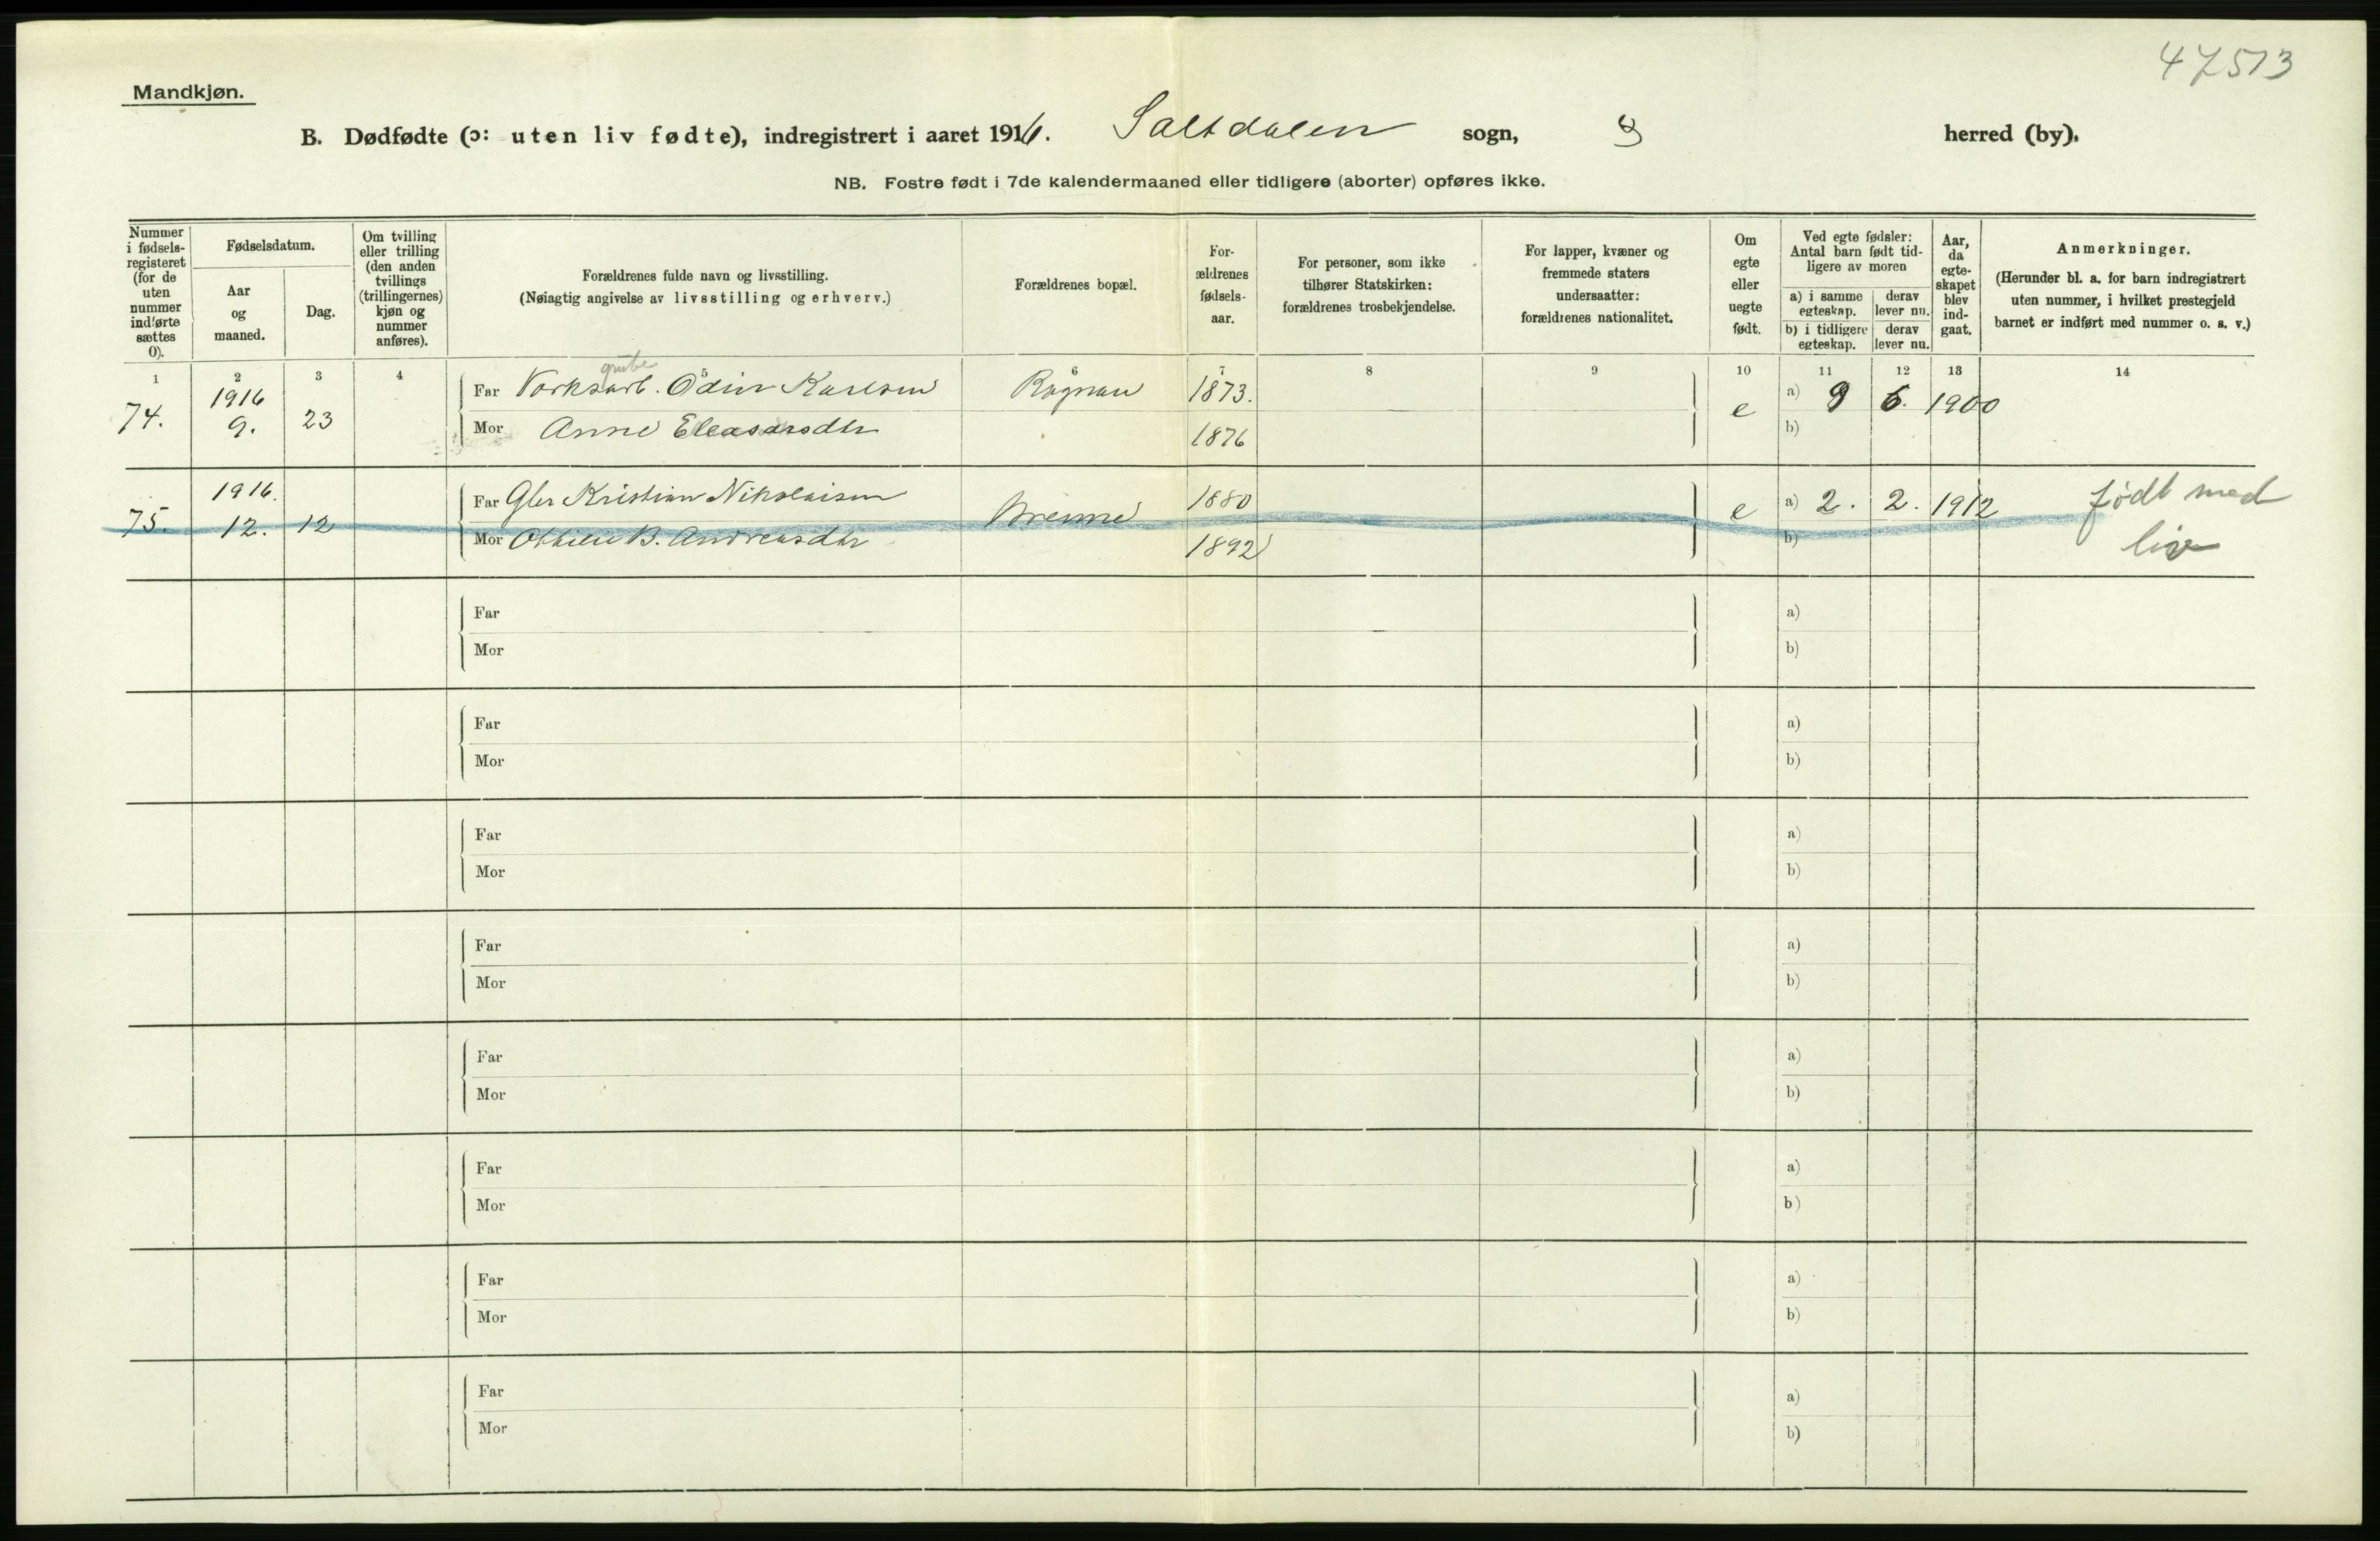 47513
Mandkjøn.
B. Dødfødte (ɔ: uten liv fødte), indregistrert i aaret 1916. Saltdalen sogn, herred (by).
NB. Fostre født i 7de kalendermaaned eller tidligere (aborter) opføres ikke.
Nummer i fødsels-registeret (for de uten nummer indførte sættes 0).
Fødselsdatum.
Aar og maaned.
Dag.
Om tvilling eller trilling (den anden tvillings (trillingernes) kjøn og nummer anføres).
Forældrenes fulde navn og livsstilling.
(Nøiagtig angivelse av livsstilling og erhverv.)
Forældrenes bopæl.
For-ældrenes fødsels-aar.
For personer, som ikke tilhører Statskirken: forældrenes trosbekjendelse.
For lapper, kvæner og fremmede staters undersaatter: forældrenes nationalitet.
Om egte eller uegte født.
Ved egte fødsler: Antal barn født tid-ligere av moren
a) i samme egteskap. derav lever nu.
b) i tidligere egteskap. derav lever nu.
Aar, da egte-skapet blev ind-gaat.
Anmerkninger.
(Herunder bl. a. for barn indregistrert uten nummer, i hvilket prestegjeld barnet er indført med nummer o. s. v.)
1 2 3 4 5 6 7 8 9 10 11 12 13 14
grube
74. 1916 9. 23 Far Odin Karlsen Rognan 1873. e a) 9 6. 1900
Mor Anne Eleasarsdtr 1876 b)
75. 1916. 12. 12 Far Gbr Kristian Nikolaisen Brenne 1880 e a) 2. 2. 1912 født med
Mor Othilie B. Andreasdtr 1892 b) liv
Far a)
Mor b)
Far a)
Mor b)
Far a)
Mor b)
Far a)
Mor b)
Far a)
Mor b)
Far a)
Mor b)
Far a)
Mor b)
Far a)
Mor b)